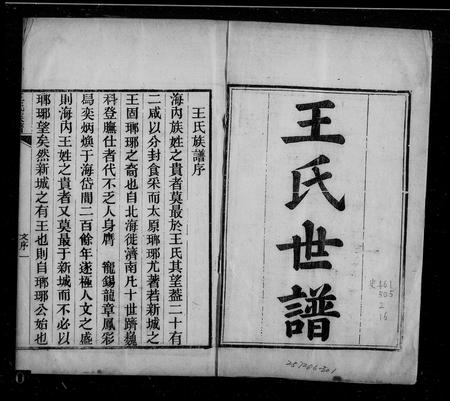 王氏世譜
史 461
305
2
16
王氏族譜序
海內族姓之貴者莫最於王氏其望蓋二十有
二咸以分封食采而太原瑯琊尤著若新城之
王固瑯琊之裔也自北海徙濟南凡十世躋巍
科登膴仕者代不乏人身膺 寵錫龍章鳳彩
舄奕炳煥于海岱間二百餘年遂極人文之盛
則海內王姓之貴者又莫最于新城而不必以
瑯琊望矣然新城之有王也則自瑯琊公始也
文序 一